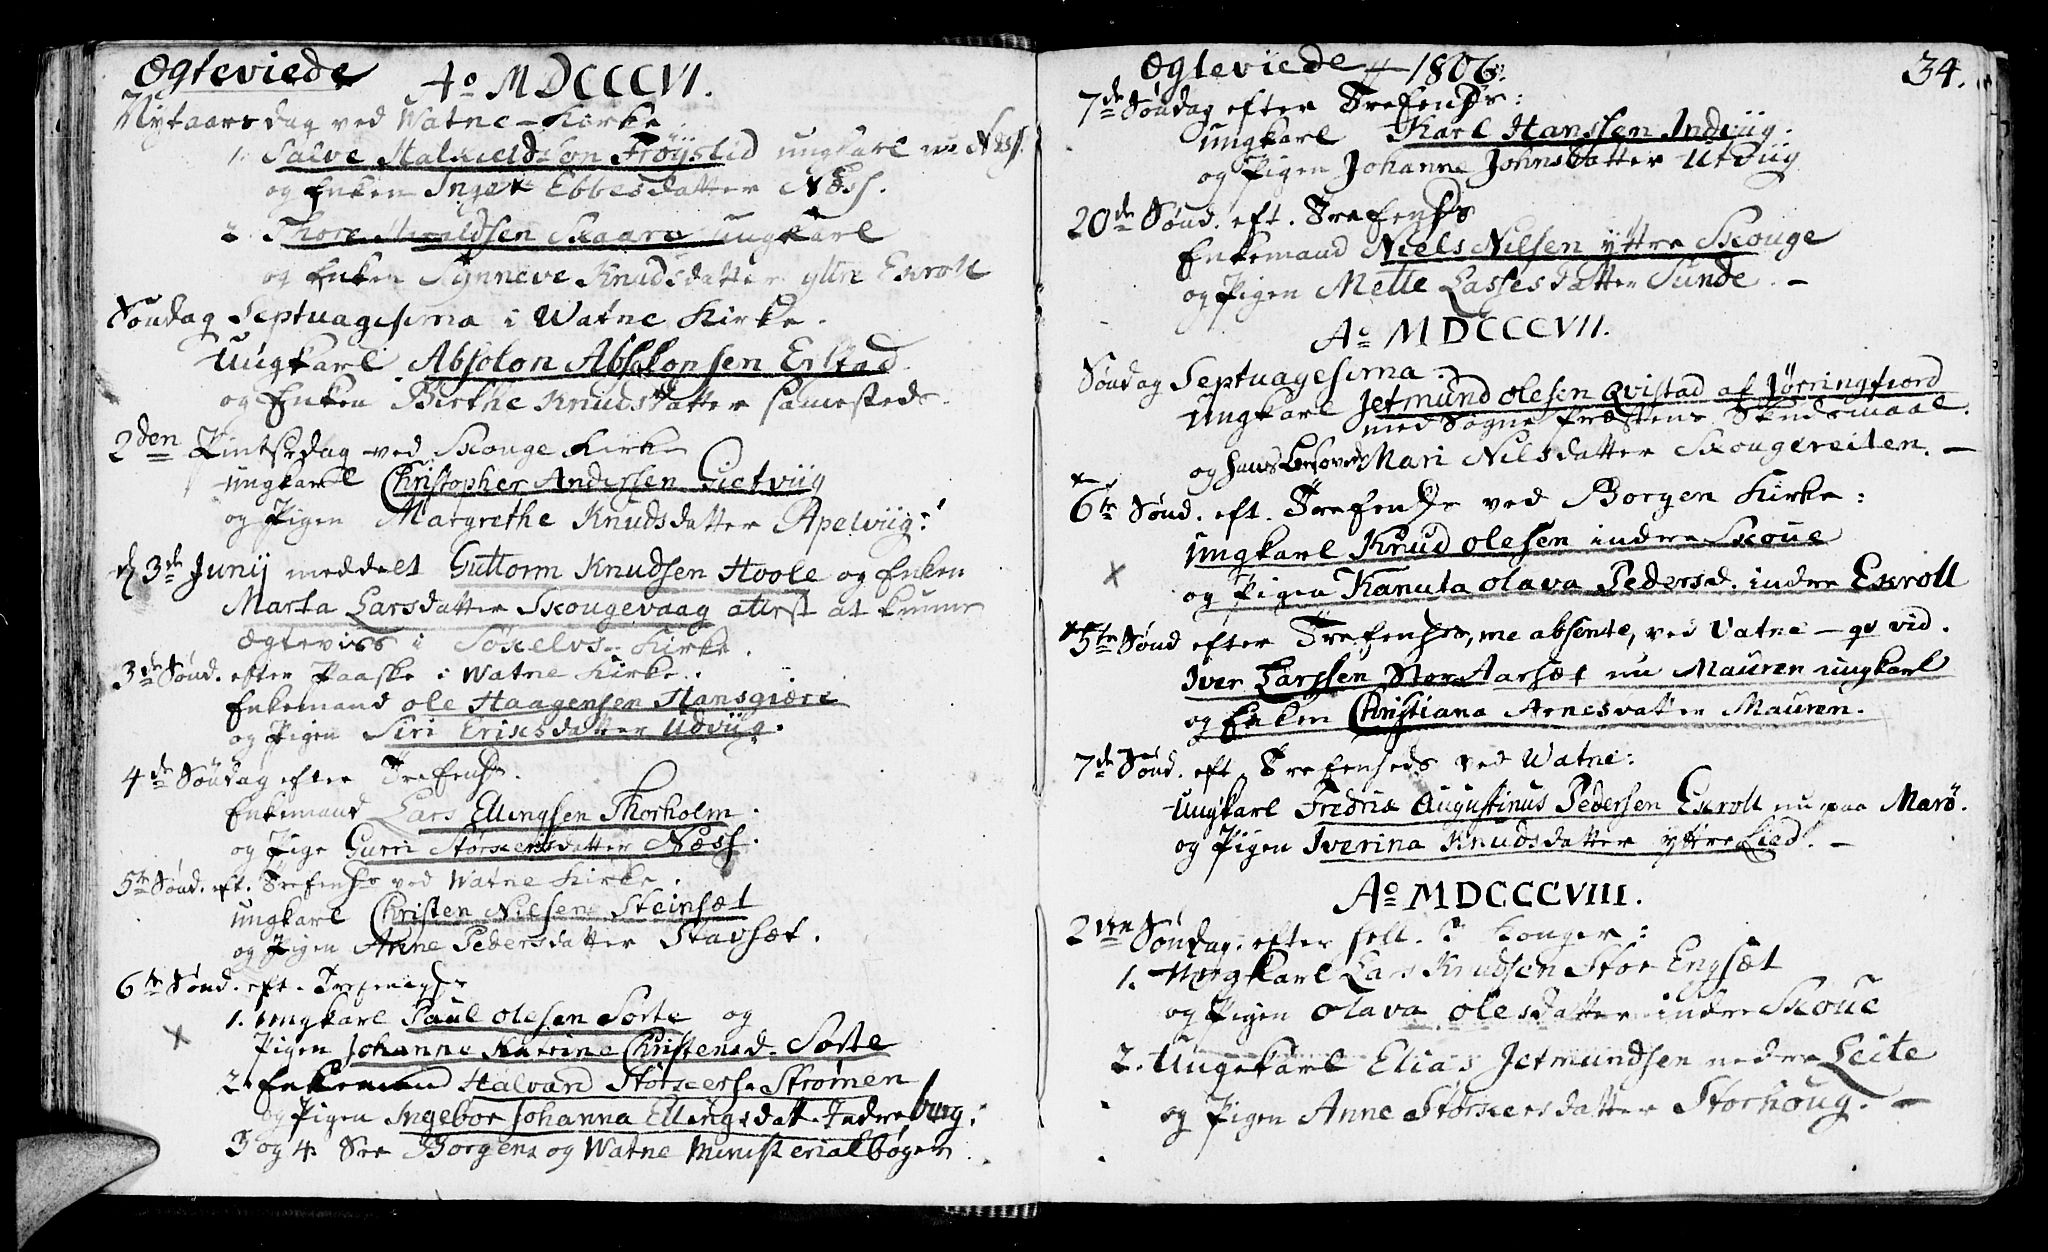 Ægteviede
Ao MDCCCVI.
Nytaarsdag ved Watne-Kirke
1. Salve Halkieldsson Frøystid ungkarl nu Næss.
og Enken Inger Ebbesdatter Næss.
2. Thore Skaare ungkarl
og Enken Synneve Knudsdatter ytre Exroll
Søndag Septuagesima i Watne Kirke.
Ungkarl Absolon Absolonsen Eilstad
og Enken Birthe Knudsdatter samesteds.
2den Pintsedag ved Skouge Kirke
ungkarl Christopher Andersen Gietviig
og Pigen Margrethe Knudsdatter Apelviig.
d. 3de Junij meddelt Guttorm Knudsen Hoole og Enken
Marta Larsdatter Skougevaag attest at kunne
Ægtevies i Søkelvs Kirke.
3de Sønd. efter Paaske i Watne Kirke.
Enkemand Ole Haagensen Hansgiære
og Pigen Siri Erixsdatter Udviig.
4de Søndag efter Trefenhs.
Enkemand Lars Ellingsen Thorholm.
og Pige Gurri Størkersdatter Næss.
5te Sønd. eft. Trefenhs ved Watne Kirke.
ungkarl Christen Nilsen Steinsæt
og Pigen Anne Pedersdatter Stavsæt.
6te Sønd. eft.
1. ungkarl Paul Olesen Sorte og
Pigen Johanne Katrine Christensd. Sorte
2. Enkemand Halvard Størkerss. Strømen
og Pigen Ingebor Johanna Ellingsdatt. Indreburg.
3 og 4. See Borgens og Watne Ministerialbøger.
Ægteviede 1806.
34.
7de Søndag efter Trefenhs:
ungkarl Karl Hanssen Indviig.
og Pigen Johanne Johnsdatter Utviig
20de Sønd. eft. Trefenhs
Enkemand Niels Nilsen yttre Skouge
og Pigen Mette Lassesdatter Sunde. -
Ao MDCCCVII.
Søndag Septuagesima
ungkarl Jetmund Olesen Qvistad af Jørringfiord
med Sogne Præstens Skudsmaal.
og hans Mari Nilsdatter Skougereiten. -
6te Sønd. eft. Trefenhs ved Borgen Kirke:
ungkarl Knud Olesen indre Skoue
og Pigen Kanuta Olava Pedersd. indre Exroll
5te Sønd efter Trefenhs, me absente, ved Vatne - qv vid.
Iver Larssen Stor Aarsæt nu Mauren ungkarl
og Enken Christiana Arnesdatter Mauren.
7de Sønd. eft Trefenheds ved Watne:
ungkarl Fredrix Augustinus Pedersen Exroll nu paa Marø.
og Pigen Iverina Knudsdatter yttre Lied. -
Ao MDCCCVIII.
2den Søndag efter hell. 3 Konger:
1. Ungkarl Lars Knudsen Stor Engsæt
og Pigen Olava Olesdatter indre Skoue
2. Ungekarl Elias Jetmundsen nedre Leite
og Pigen Anne Størkersdatter Storhoug. -